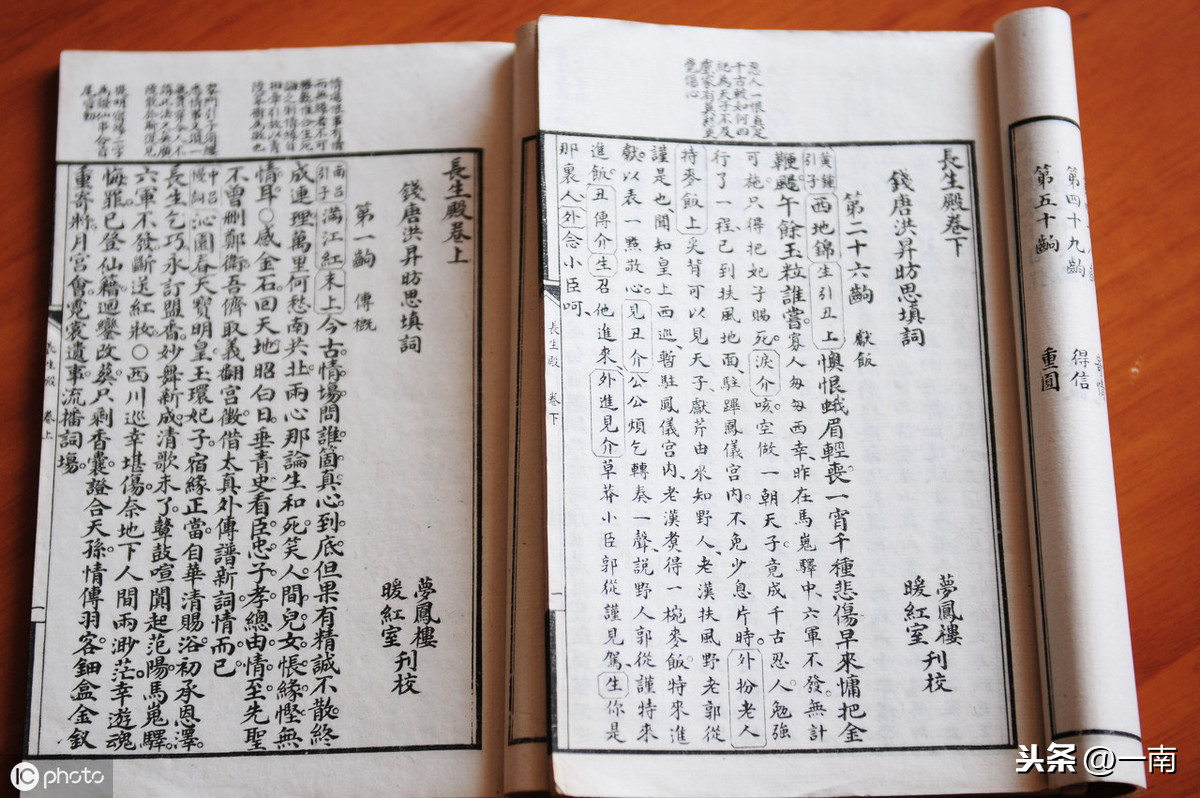 第四十九齣 得信
第五十齣 重圓
人一恨真足
千古較如何四
紀為天子不及
盧家有莫愁更
覺傷心
長生殿卷下
錢唐洪昇昉思填詞
夢鳳樓
暖紅室 刊校
第二十六齣 獻飯
黃鐘引子 西地錦 生引丑上 懊恨蛾眉輕喪。一宵千種悲傷。早來慵把金
鞭颺。午餘玉粒誰嘗。寡人匆匆西幸、昨在馬嵬驛中、六軍不發。無計
可施、只得把妃子賜死。淚介 咳、空做一朝天子。竟成千古忍人。勉強
行了一程、已到扶風地面、駐蹕鳳儀宮內。不免少息片時。外扮老人
持麥飯上 炙背可以見天子、獻芹由來知野人、老漢扶風野老郭從
謹是也、聞知皇上西巡、暫駐鳳儀宮內、老漢煑得一椀麥飯、特來進
獻、以表一點敬心。見丑介 公公煩乞轉奏一聲、說野人郭從謹特來
進飯。丑傳介 生 召他進來、外進見介 草莽小臣郭從謹見駕、生 你是
那裏人、外 念小臣呵、
長生殿 卷下
長生殿卷上
錢唐洪昇昉思填詞
夢鳳樓
暖紅室 刊校
第一齣 傳概
南呂引子 滿江紅 末上 今古情場、問誰箇真心到底。但果有精誠不散、終
成連理。萬里何愁南共北、兩心那論生和死。笑人間兒女悵緣慳、無
情耳。○感金石、回天地。昭白日、垂青史。看臣忠子孝、總由情至。先聖
不曾刪鄭衛、吾儕取義翻宮徵。借太真外傳譜新詞、情而已。
中呂慢詞 沁園春 天寶明皇、玉環妃子、宿緣正當。自華清賜浴、初承恩澤。
長生乞巧、永訂盟香。妙舞新成、清歌未了、鼙鼓喧闐起范陽。馬嵬驛、
六軍不發、斷送紅妝。○西川巡幸堪傷。奈地下人間兩渺茫。幸遊魂
悔罪、已登仙籍。迴鑾改葬、只剩香囊。證合天孫、情傳羽客、鈿盒金釵
重寄將。月宮會、霓裳遺事、流播詞場。
長生殿 卷上
iC photo
头条 @一南